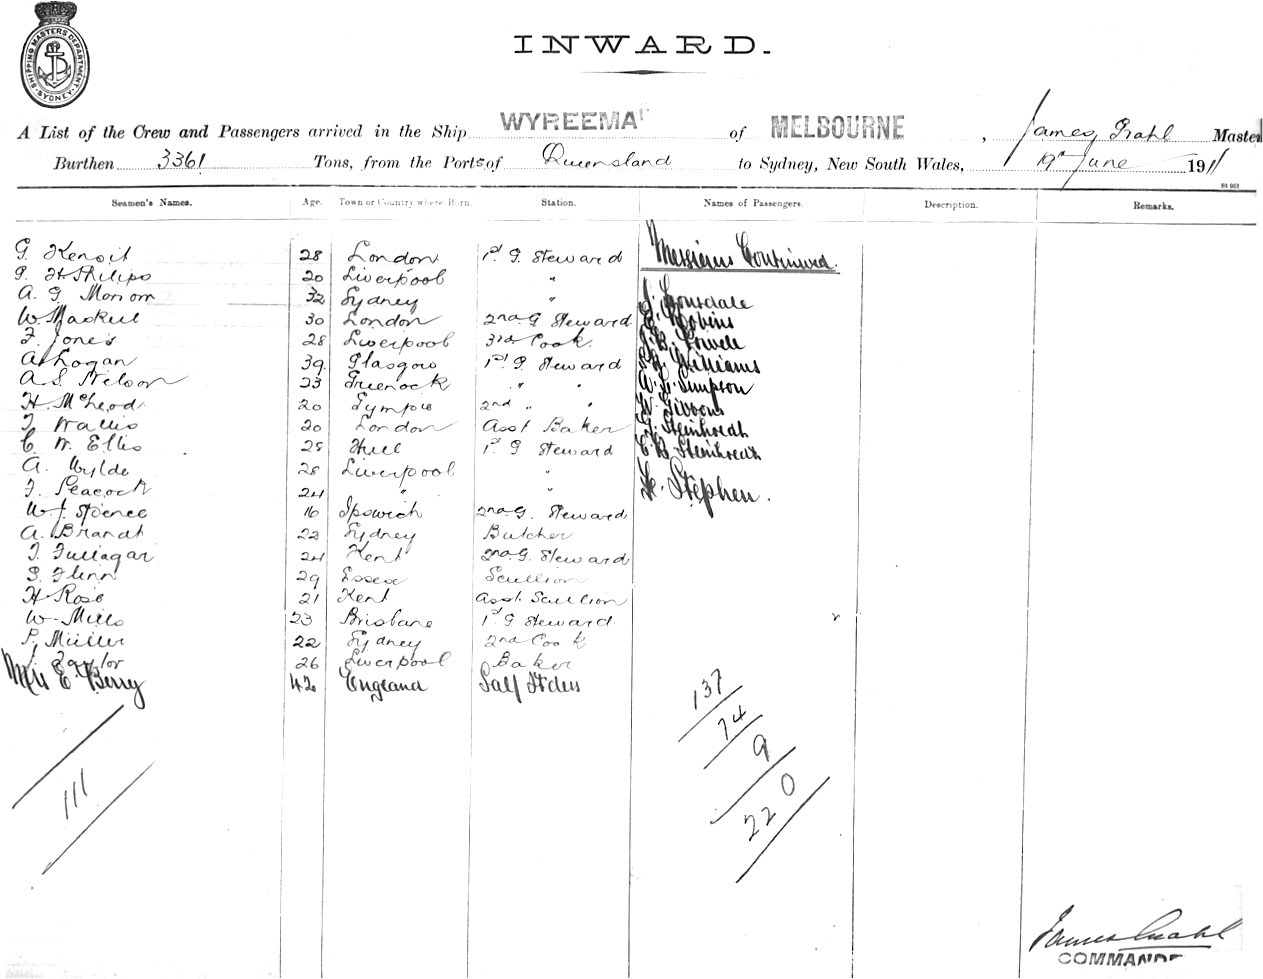 SHIPPING MASTERS DEPARTMENT SYDNEY
INWARD.
A List of the Crew and Passengers arrived in the Ship WYREEMA of MELBOURNE, James Grahl Master
Burthen 3361 Tons, from the Ports of Queensland to Sydney, New South Wales, 19th June 1911
St 953
Seamen's Names. Age. Town or Country where Born. Station. Names of Passengers. Description. Remarks.
28 London 1st G Steward
Continued.
20 Liverpool "
A. G. 32 Sydney "
J. Lonsdale
W. Maskell 30 London 2nd G Steward
J. Jones 28 Liverpool 3rd Cook
Powell
A Logan 39 Glasgow 1st G Steward
Williams
A. S. Nelson 23 Greenock " "
A. L. Simpson
H. McLeod 20 Gympie 2nd " "
W. Gibbons
T. Wallis 20 London Asst Baker
C. W. Ellis 28 Hull 1st G Steward
A. Wylde 28 Liverpool "
J. Peacock 24 " "
Stephen.
W. J. Spence 16 Ipswich 2nd G. Steward
A. Brandt 22 Sydney Butcher
T. Fullagar 24 Kent 2nd G Steward
S. Flinn 29 Essex Scullion
H Rose 21 Kent Asst. Scullion
W. Mills 23 Brisbane 1st G Steward
P. Müller 22 Sydney 2nd Cook
J. Taylor 26 Liverpool Baker
Mrs E. Berry 42 England
137
74
9
220
111
James Grahl
COMMANDE